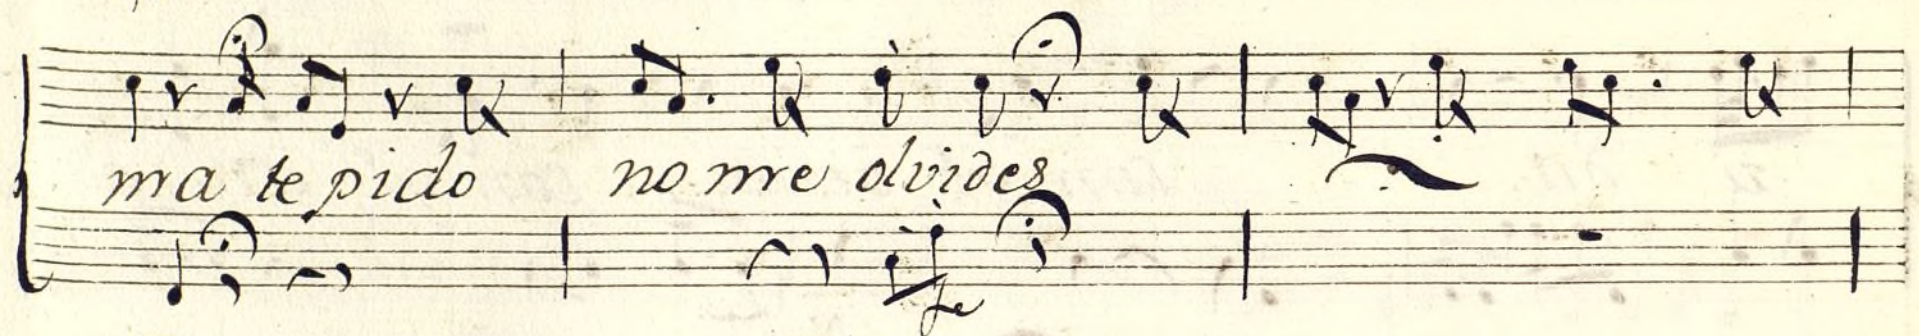 ma te pido no me olvides
fe